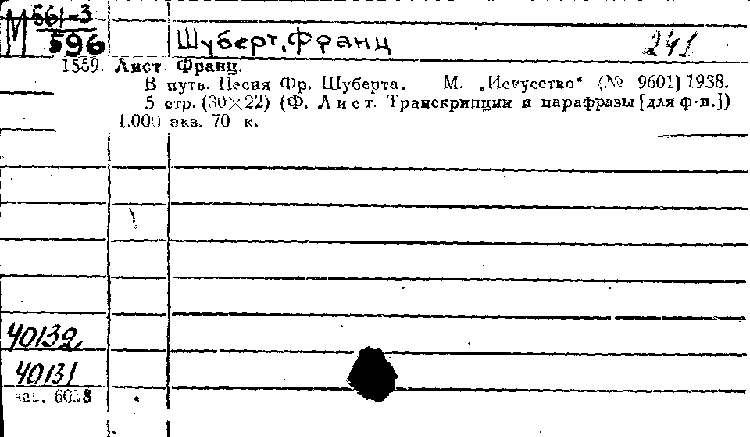 М 561-3
596
Шуберт, Франц
241
1569. Лист Франц.
В путь. Песня Фр. Шуберта. М. „Искусство“ (№ 9601) 1938.
5 стр. (30×22) (Ф. Лист. Транскрипции и парафразы [для ф-п.])
1.000 экз. 70 к.
40132
40131